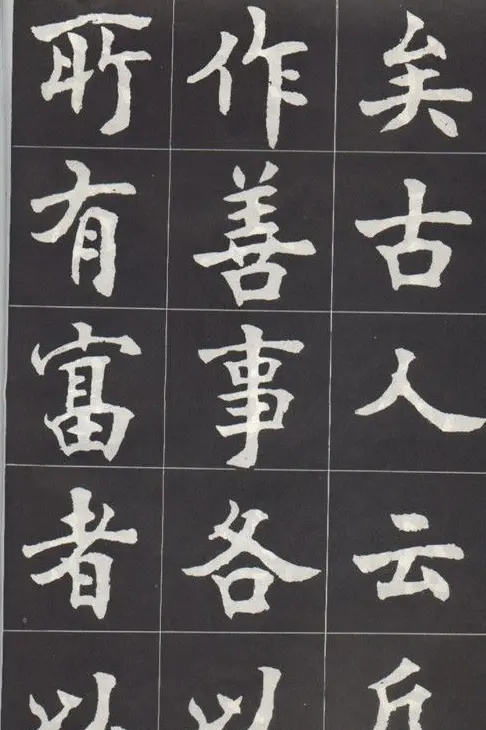 矣古人云
作善事各以
所有富者以